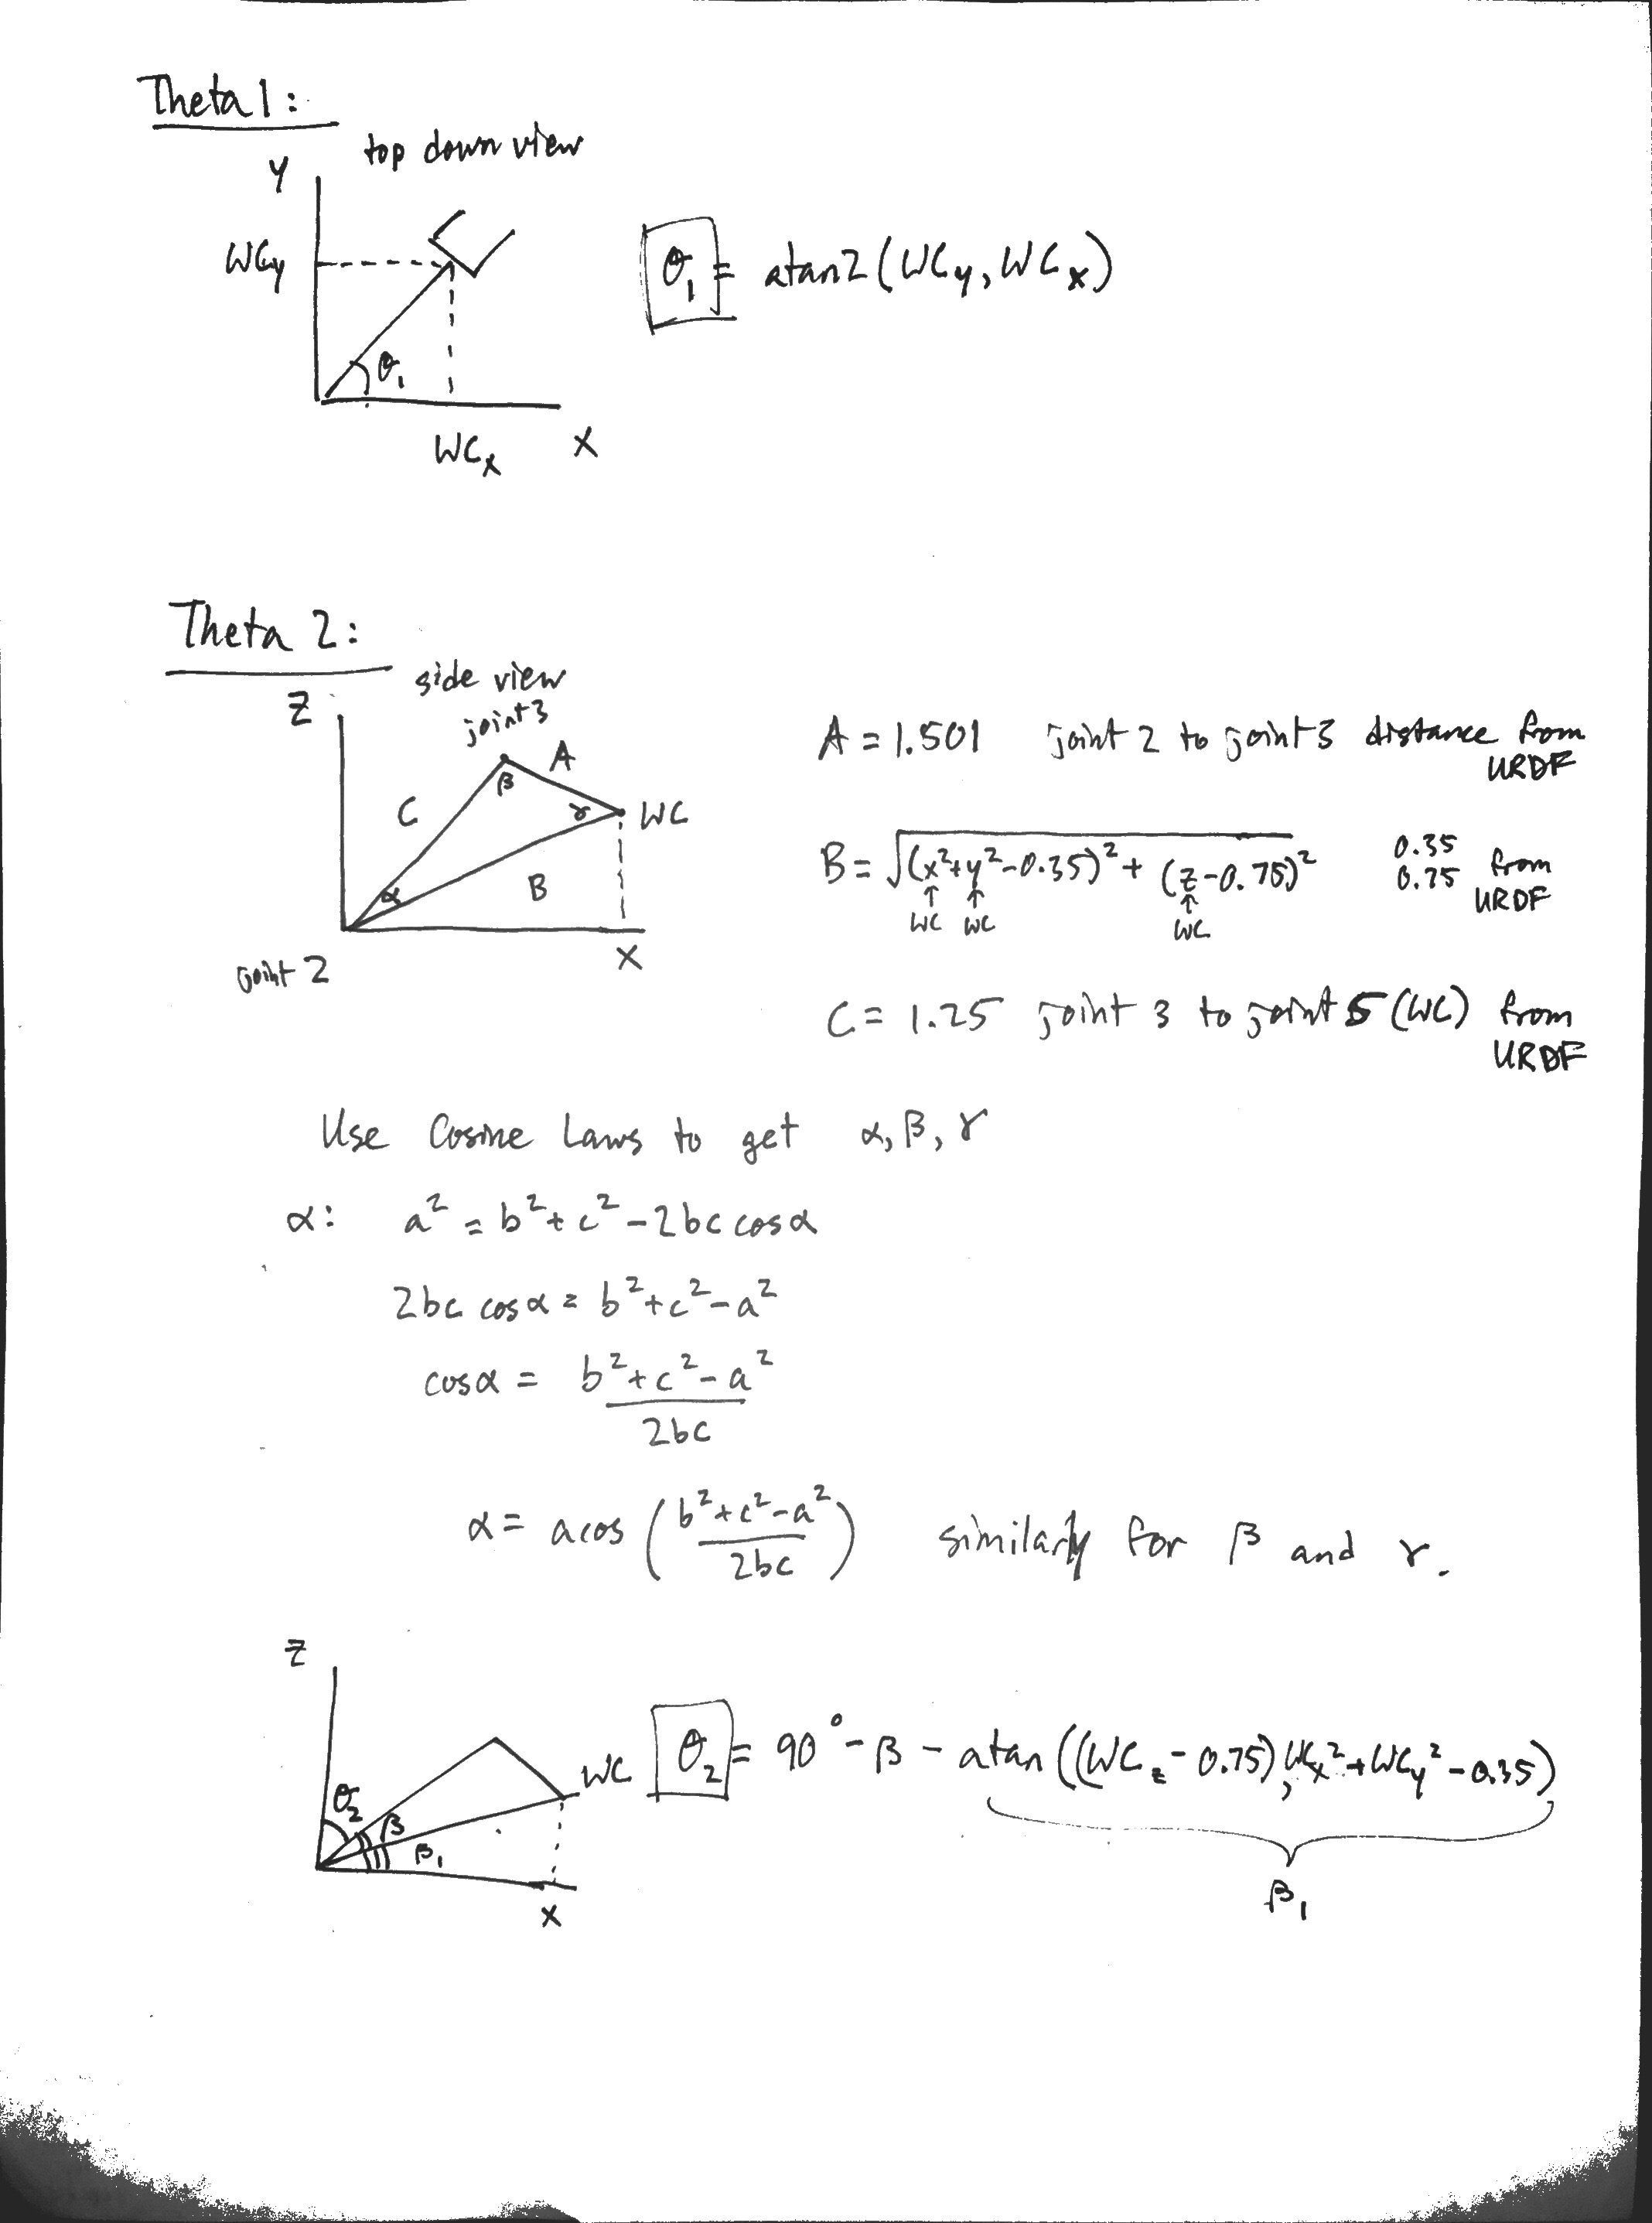 Theta 1:
top down view
Y
WCy
θ₁
WCx
X
θ₁ = atan2(WCy, WCx)
Theta 2:
side view
Z
joint 3
A
β
C
γ
WC
α
B
X
joint 2
A = 1.501 joint 2 to joint 3 distance from
URDF
B = √(x²+y²-0.35)² + (z-0.75)² 0.35
0.75 from
URDF
↑ ↑ ↑
WC WC WC
C = 1.25 joint 3 to joint 5 (WC) from
URDF
Use Cosine Laws to get α, β, γ
α: a² = b²+c²-2bc cosα
2bc cosα = b²+c²-a²
cosα = b²+c²-a²
2bc
α = acos (b²+c²-a² / 2bc) similarly for β and γ.
Z
WC
θ₂
β
β₁
X
θ₂ = 90° - β - atan((WCz - 0.75), WCx²+WCy²-0.35)
β₁